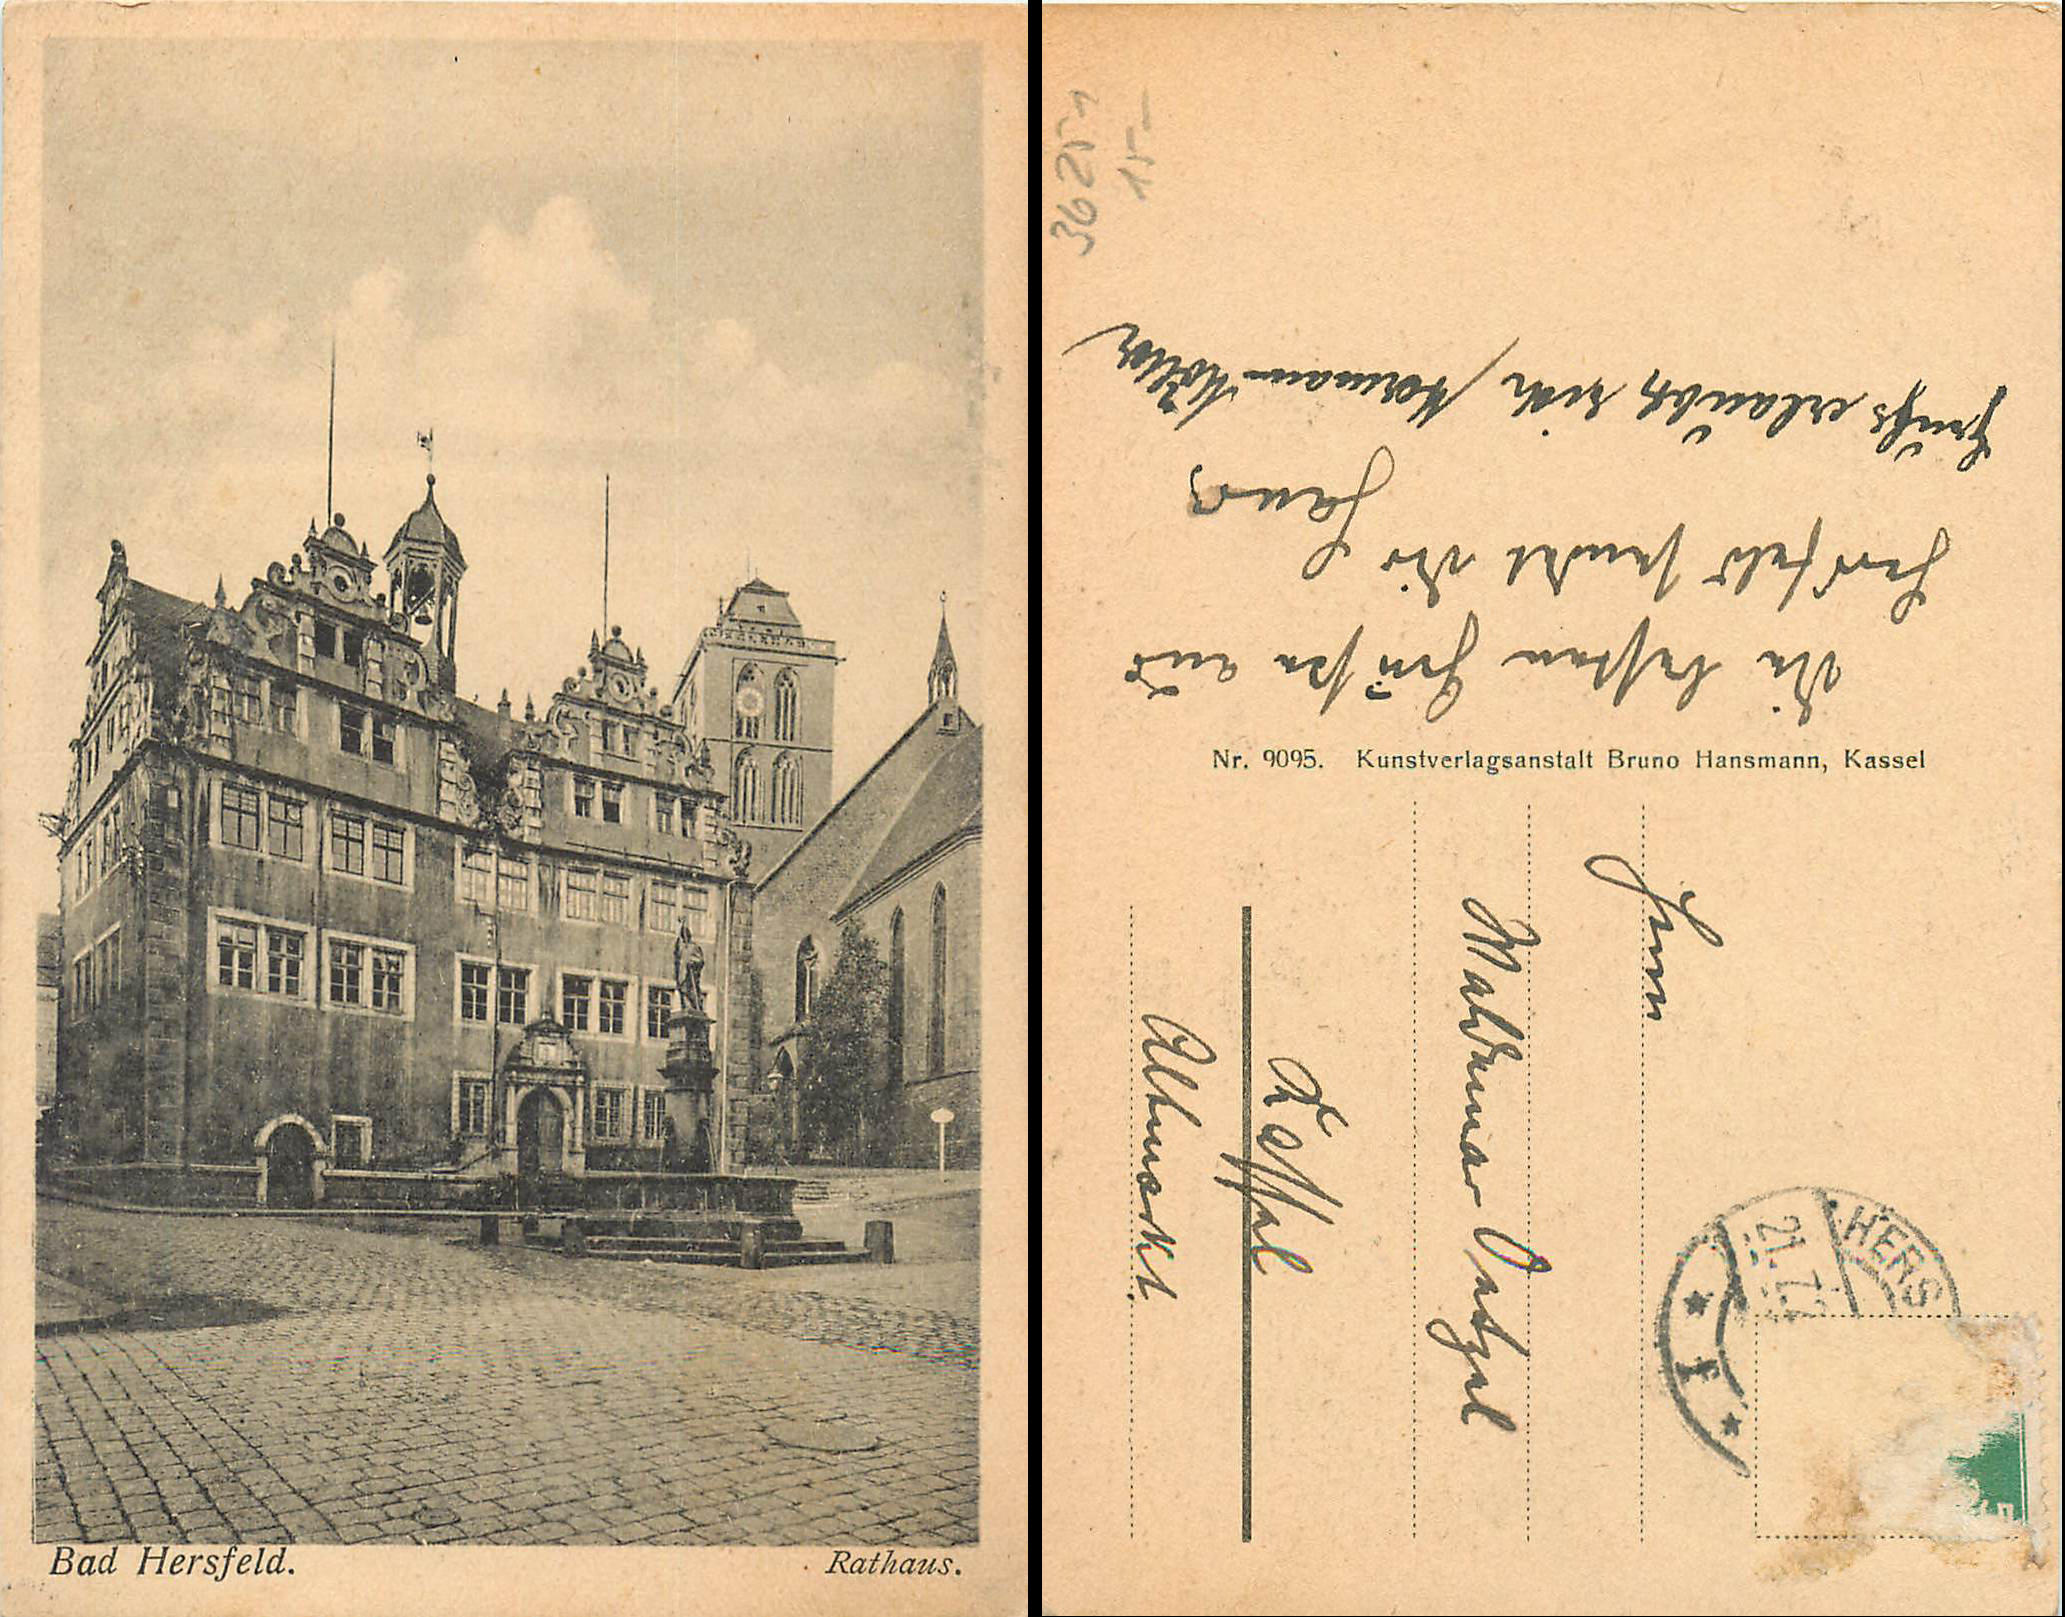 Bad Hersfeld.
Rathaus.
3625-1
15-
Die besten Grüße aus
Hersfeld sendet Dir
Grüße erlaubt sich Hermann
Nr. 9095. Kunstverlagsanstalt Bruno Hansmann, Kassel
Herrn
Waldemar
Kassel
Altmarkt.
HERS
21.7.
* 1 *